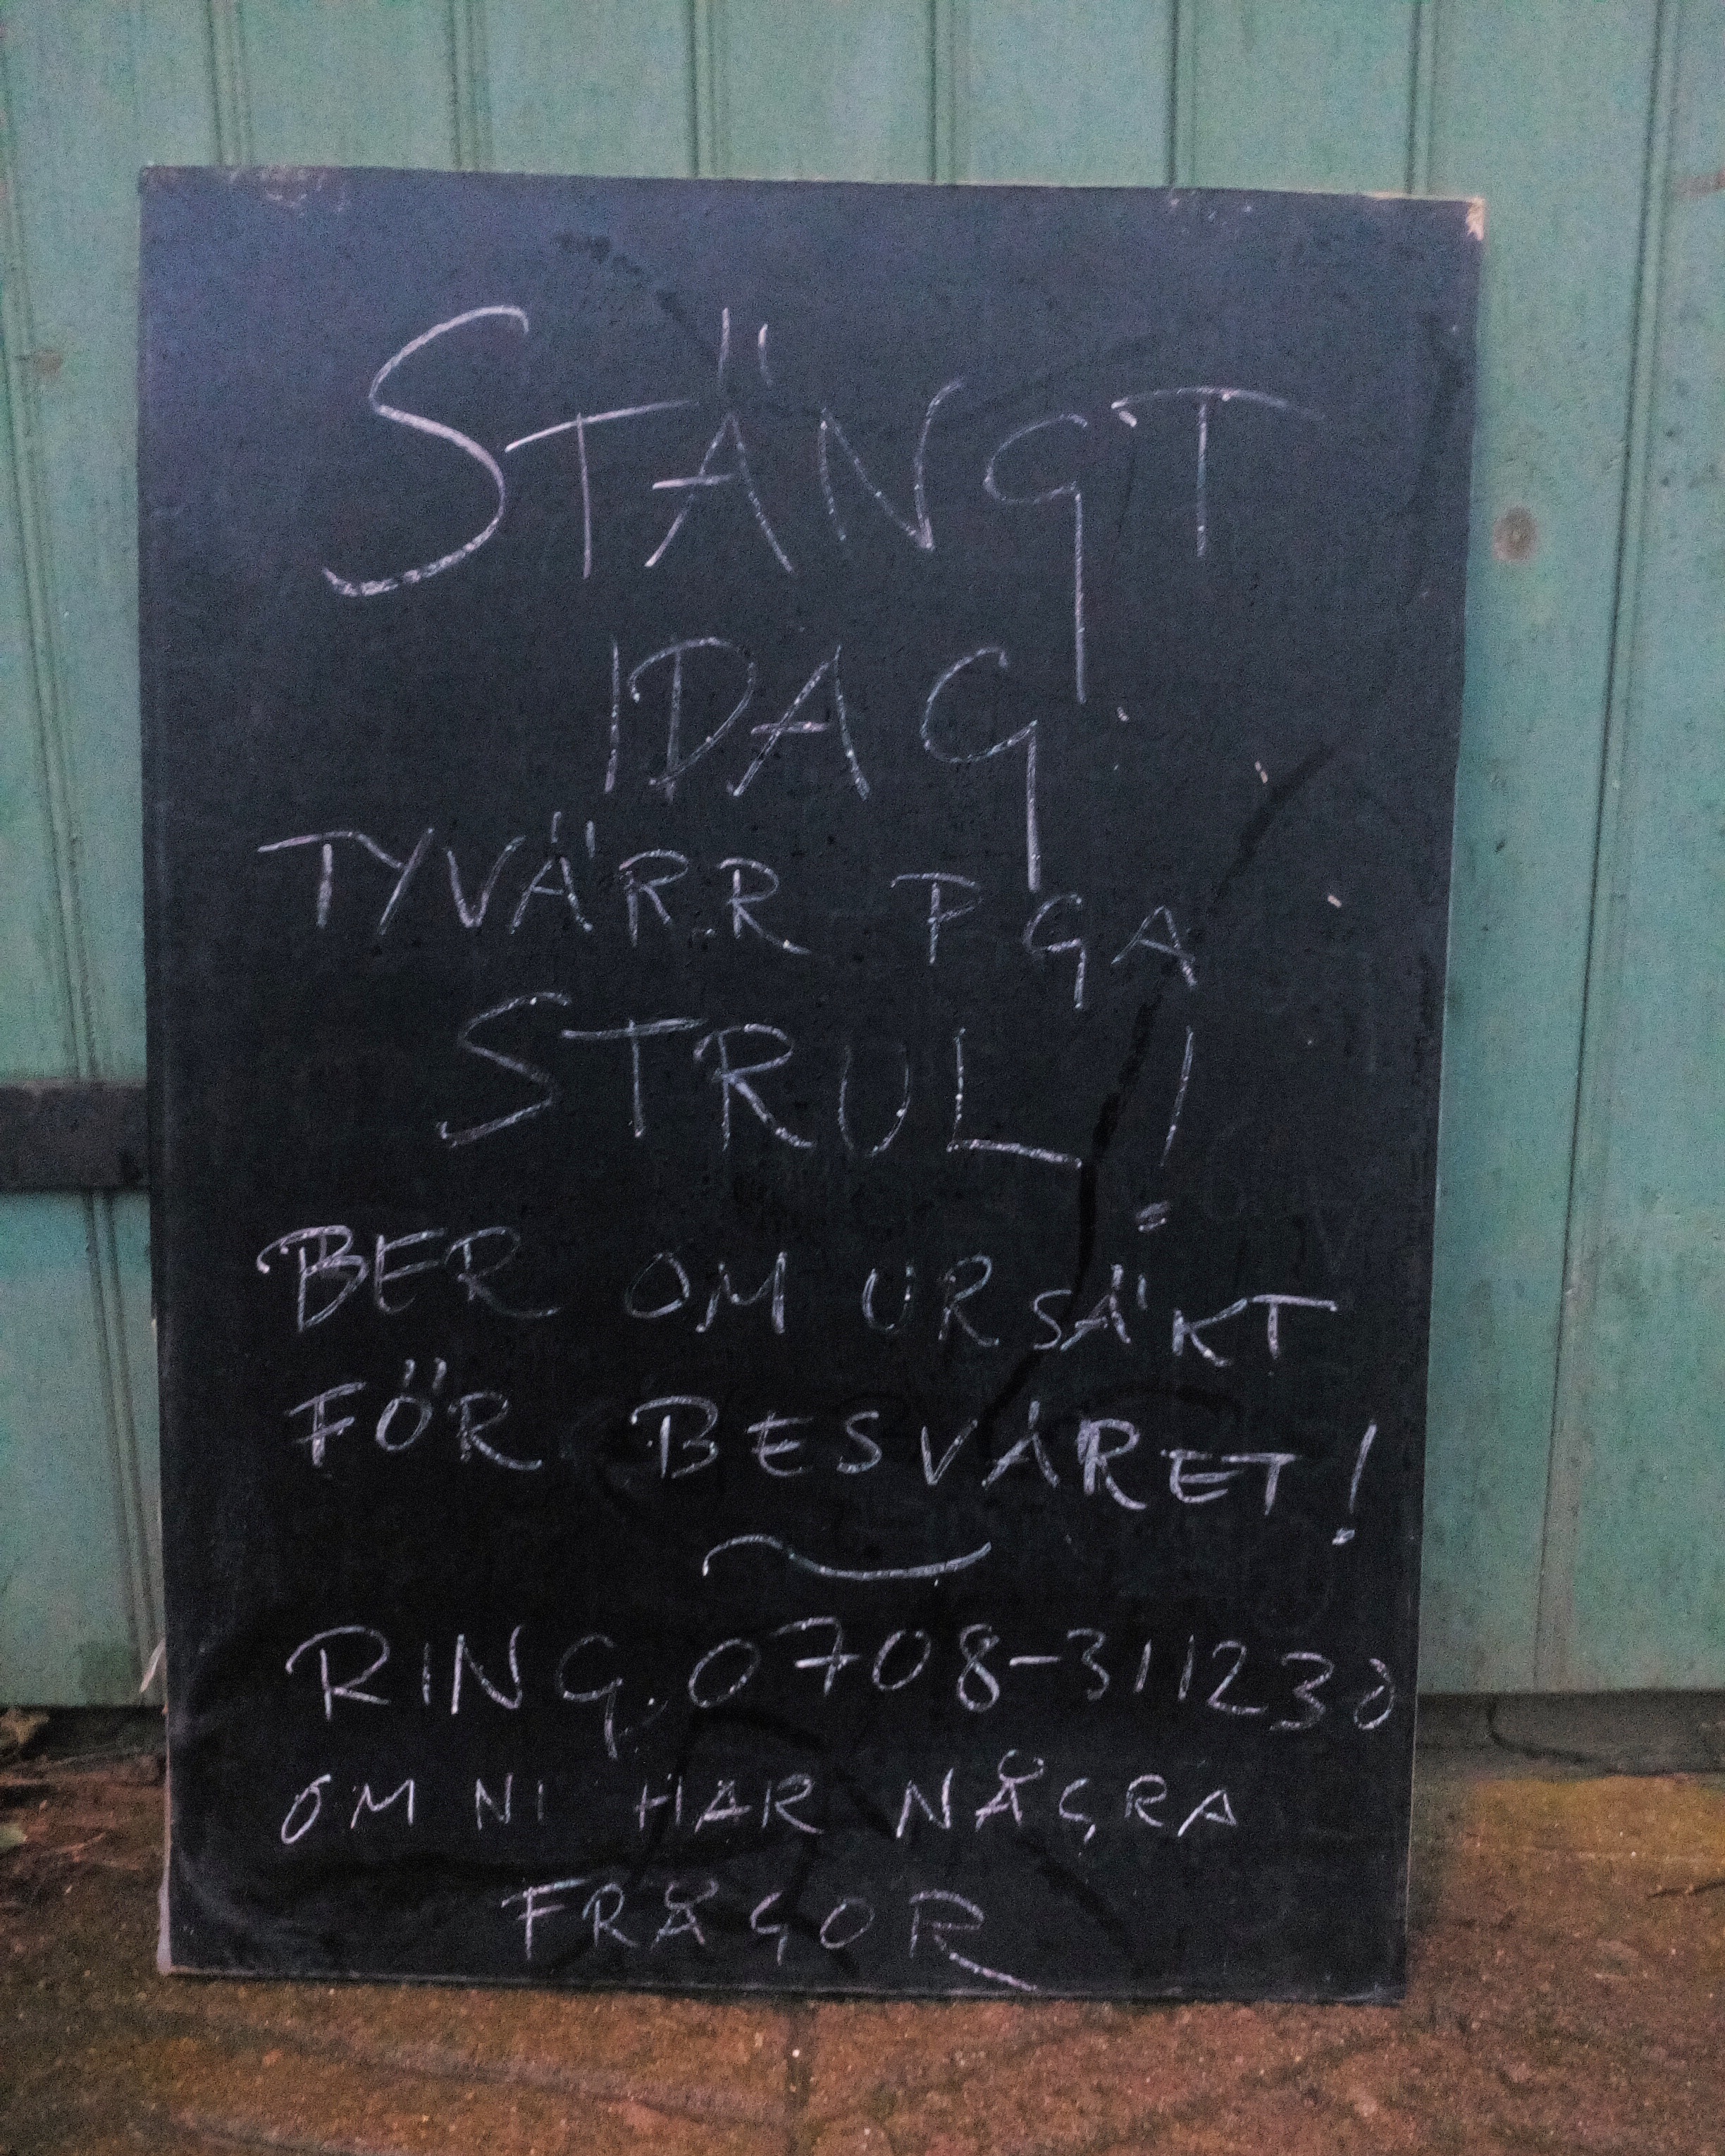 STÄNGT
IDAG
TYVÄRR PGA
STRUL!
BER OM URSÄKT
FÖR BESVÄRET!
RING. 0708-311230
OM NI HAR NÅGRA
FRÅGOR